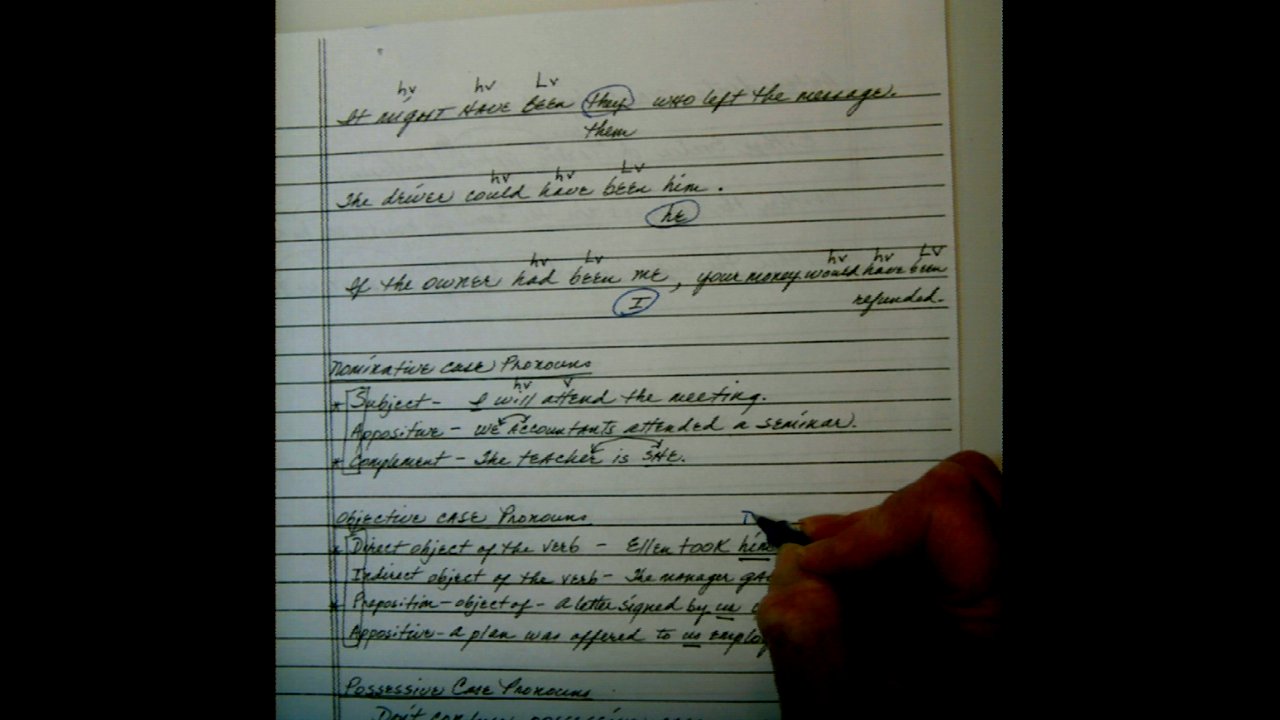 hv hv Lv
It might HAVE BEEN they who left the message.
them
hv hv Lv
The driver could have been him.
he
hv Lv hv hv LV
If the owner had been me, your money would have been
I refunded.
Nominative case Pronouns
hv v
* Subject - I will attend the meeting.
Appositive - we Accountants attended a seminar.
* Complement - The teacher is SHE.
Objective case Pronouns
* Direct object of the verb - Ellen took him
Indirect object of the verb - The manager
* Preposition - object of - a letter signed by us
Appositive - a plan was offered to us
Possessive Case Pronouns
Don't